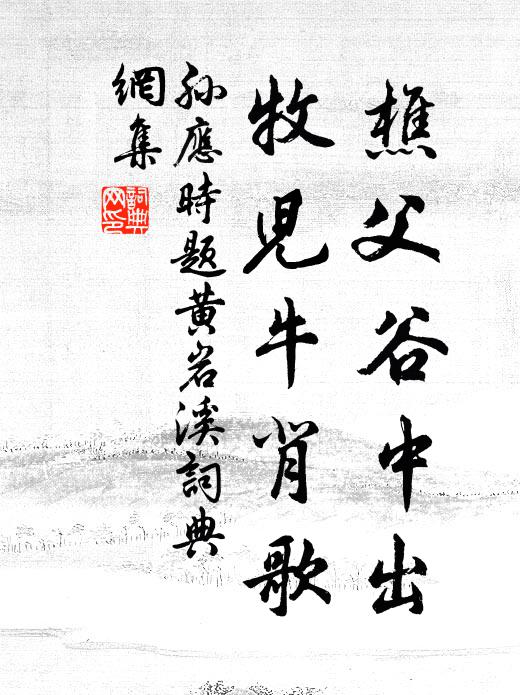 樵父谷中出
牧兒牛背歌
孙應時題黄岩溪詞典
網集
詞典
网印